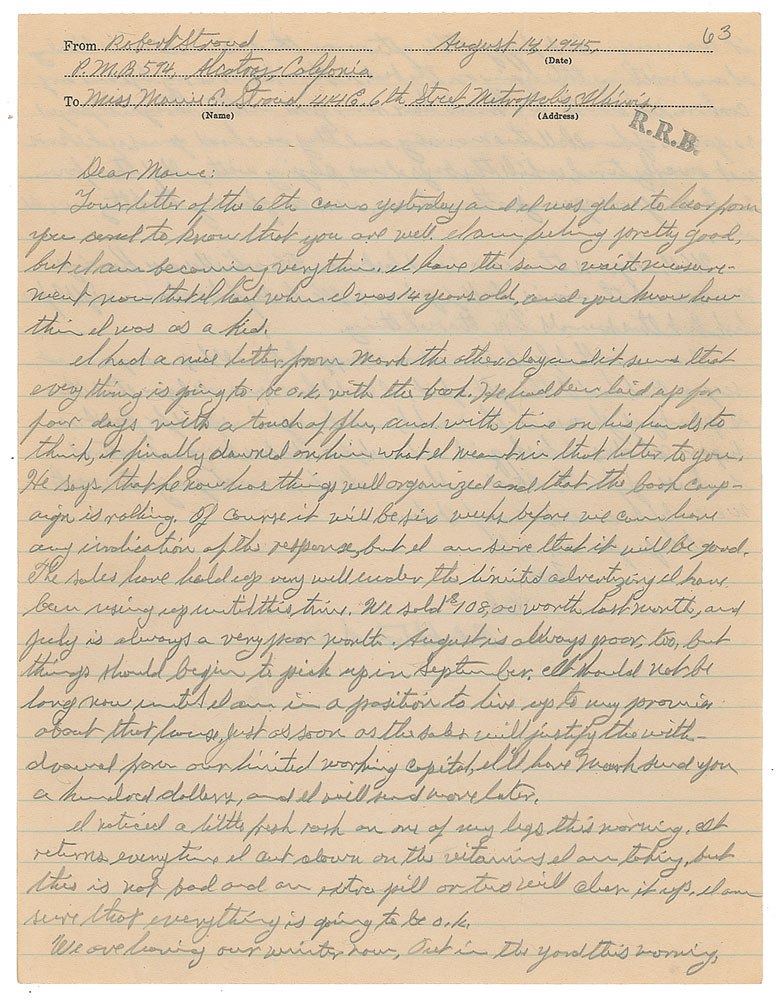 63
From Robert Stroud August 14, 1945,
(Date)
P.M.B 594, Alcatraz, California
To Miss Mamie E. Stroud, 414 E. 6th Street, Metropolis, Illinois,
(Name) (Address)
R.R.B.
Dear Mame:
Your letter of the 6th came yesterday and I was glad to hear from
you and to know that you are well. I am feeling pretty good,
but I am becoming very thin. I have the same waist measure-
ment now that I had when I was 14 years old, and you know how
thin I was as a kid.
I had a nice letter from Mark the other day and it seems that
everything is going to be o.k. with the book. He had been laid up for
four days with a touch of flu, and with time on his hands to
think, it finally dawned on him what I meant in that letter to you.
He says that he now has things well organized and that the book camp-
aign is rolling. Of course it will be six weeks before we can have
any indication of the response, but I am sure that it will be good.
The sales have held up very well under the limited advertizing I have
been using up until this time. We sold $108.00 worth last month, and
July is always a very poor month. August is always poor, too, but
things should begin to pick up in September. It should not be
long now until I am in a position to live up to my promise
about that house. Just as soon as the sales will justify the with-
drawal from our limited working capital, I'll have Mark send you
a hundred dollars, and I will send more later.
I noticed a little fresh rash on one of my legs this morning. It
returns everytime I cut down on the vitamins I am taking, but
this is not bad and an extra pill or two will clear it up. I am
sure that everything is going to be o.k.
We are having our winter now. Out in the yard this morning,